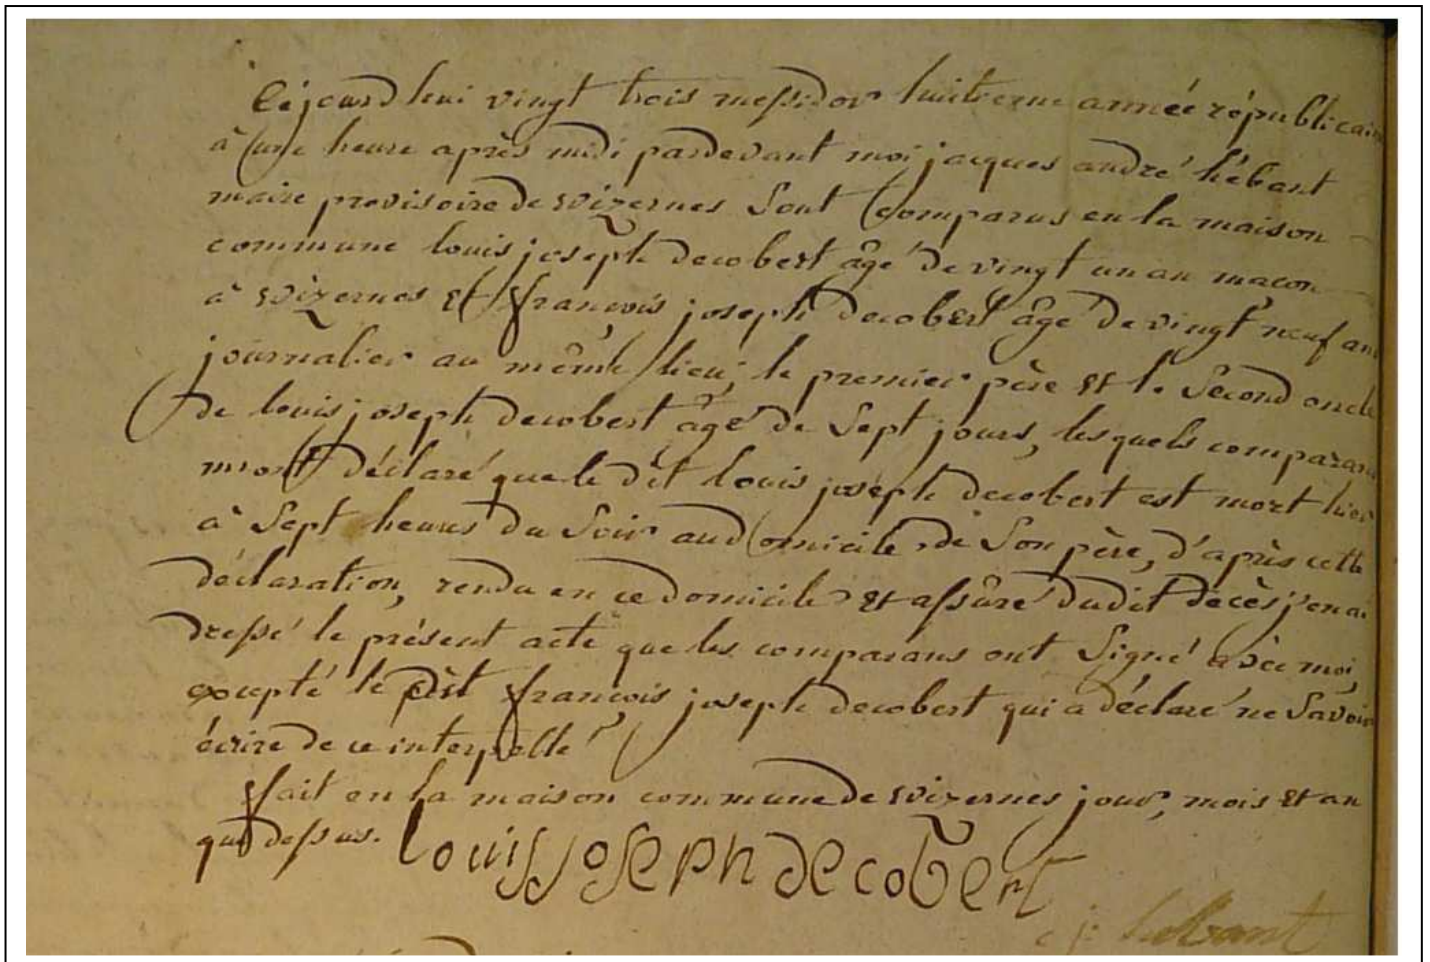 Cejourdhui vingt trois messidor huitieme année républicain
à une heure après midi pardevant moi jacques andré hébant
maire provisoire de Wizernes Sont Comparus en la maison
commune louis joseph decobert âgé de vingt un an macon
à Wizernes Et françois joseph decobert âgé de vingt neuf ans
journalier au même lieu, le premier père Et le Second oncle
De louis joseph decobert âgé de Sept jours, lesquels comparans
m'ont déclaré que le dit louis joseph decobert est mort hier
à Sept heures du Soir au domicile de Son père, d'après cette
déclaration, rendu en ce domicile Et assûré dudit décès j'en ai
dressé le présent acte que les comparans ont Signé avec moi,
excepté le dit françois joseph decobert qui a déclaré ne Savoir
écrire de ce interpellé
fait en la maison commune de Wizernes jour, mois Et an
que dessus. louis joseph decobert
hébant